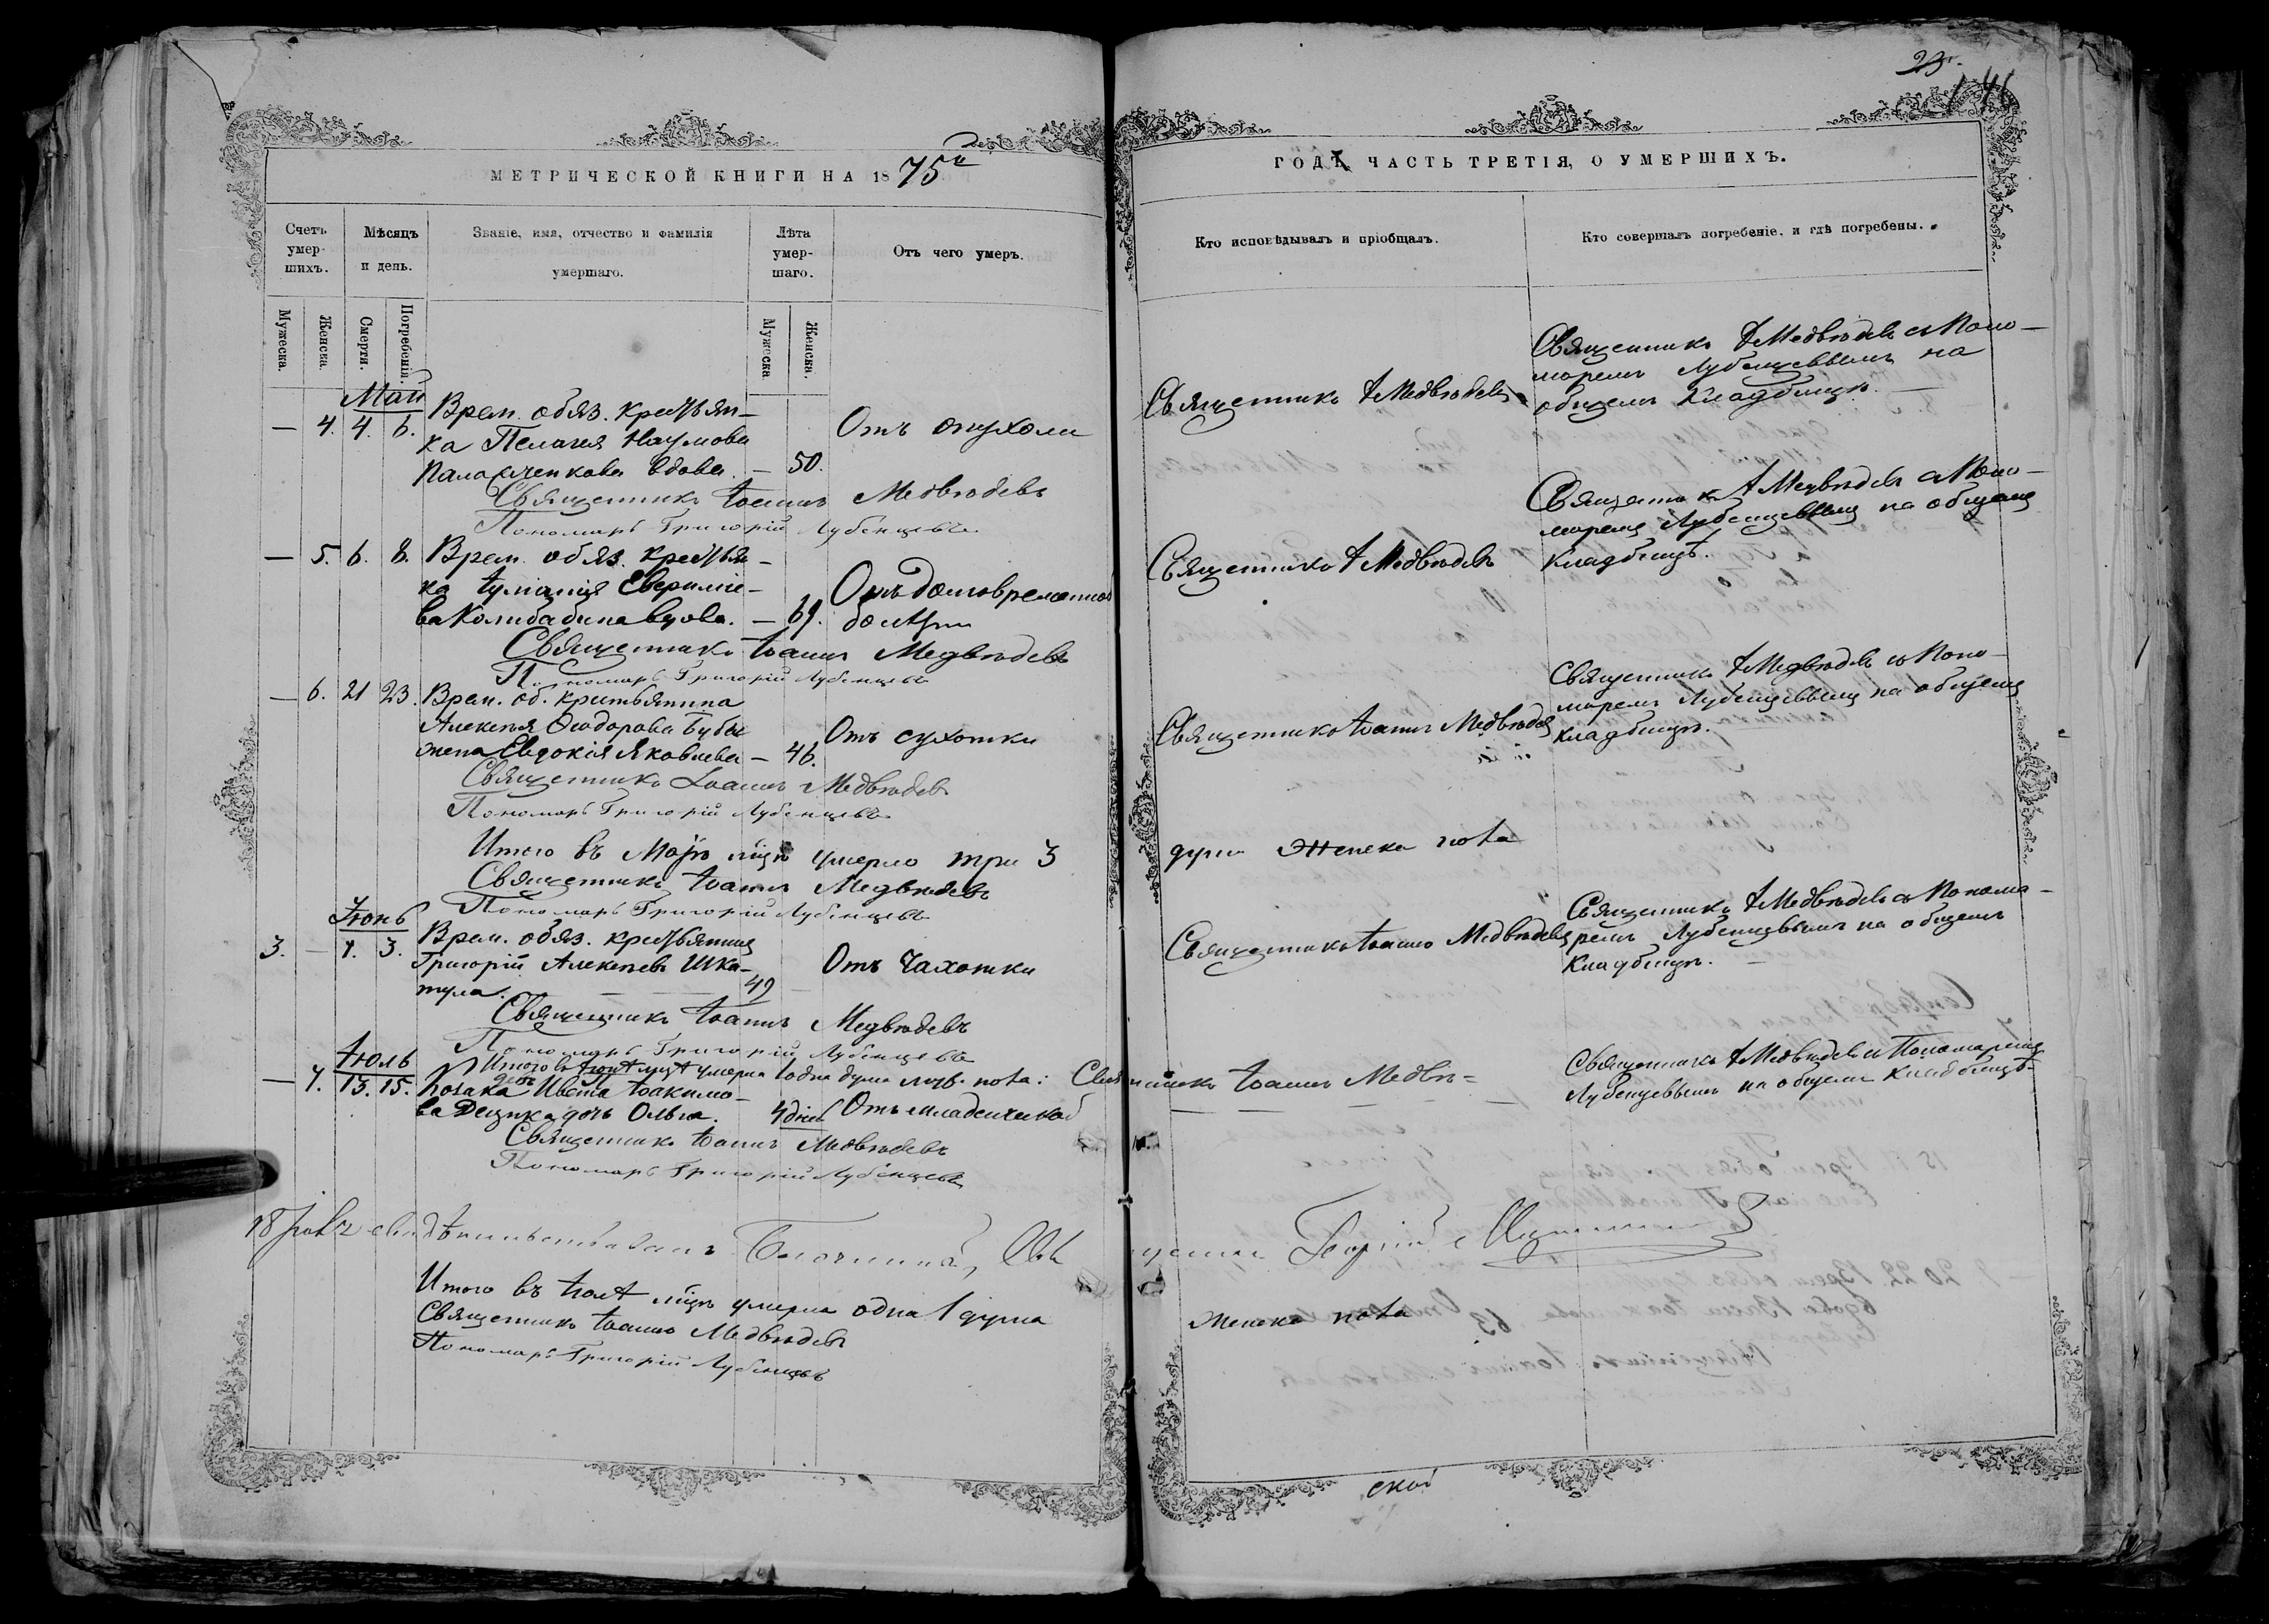 23.
МЕТРИЧЕСКОЙ КНИГИ НА 1875й
Счетъ умер-шихъ.
Мужеска.
Женска.
Мѣсяцъ и день.
Смерти.
Погребенія.
Званіе, имя, отчество и фамилія умершаго.
Лѣта умер-шаго.
Мужеска
Женска.
Отъ чего умеръ.
Май
— 4. 4. 6. Врем. обяз. крестьян-
ка Пелагея Наумова
вдова. — 50.
Отъ опухоли
Священникъ Іоаннъ Медвѣдевъ
Пономарь Григорій Лубенцевъ
— 5. 6. 8. Врем. обяз. крестьян-
ка
вдова. — 69.
Отъ долговременной
болѣзни
Священникъ Іоаннъ Медвѣдевъ
Пономарь Григорій Лубенцевъ
— 6. 21 23. Врем. об. крестьянина
Алексѣя Ѳеодорова
жена Евдокія Яковлева — 46.
Отъ сухотки
Священникъ Іоаннъ Медвѣдевъ
Пономарь Григорій Лубенцевъ
Итого въ Маѣ мцѣ умерло три 3
Священникъ Іоаннъ Медвѣдевъ
Пономарь Григорій Лубенцевъ
Іюнь
3. — 1. 3. Врем. обяз. крестьянинъ
Григорій Алексѣевъ Шка-
тула. 49
Отъ чахотки
Священникъ Іоаннъ Медвѣдевъ
Пономарь Григорій Лубенцевъ
Итого въ Іюнѣ мцѣ умерла 1 одна душа муж. пола:
Іюль
— 7. 13. 15. Козака Іоакимо-
ва дочь Ольга. 4 дней
Отъ младенческой
Священникъ Іоаннъ Медвѣдевъ
Пономарь Григорій Лубенцевъ
свидѣтельствовалъ Благочинный, Свя
Итого въ Іюлѣ мцѣ умерла одна 1 душа
Священникъ Іоаннъ Медвѣдевъ
Пономарь Григорій Лубенцевъ
ГОДЪ ЧАСТЬ ТРЕТІЯ, О УМЕРШИХЪ.
Кто исповѣдывалъ и пріобщалъ.
Кто совершалъ погребеніе, и гдѣ погребены.
Священникъ І Медвѣдевъ
Священникъ І Медвѣдевъ съ Поно-
маремъ Лубенцевымъ на
общемъ кладбищѣ.
Священникъ І Медвѣдевъ
Священникъ І Медвѣдевъ съ Поно-
маремъ Лубенцевымъ на общемъ
кладбищѣ.
Священникъ Іоаннъ Медвѣдевъ
Священникъ І Медвѣдевъ съ Поно-
маремъ Лубенцевымъ на общемъ
кладбищѣ.
души женска пола
Священникъ Іоаннъ Медвѣдевъ
Священникъ І Медвѣдевъ съ Понома-
ремъ Лубенцевымъ на общемъ
кладбищѣ.
Священникъ Іоаннъ Медвѣ=
Священникъ І Медвѣдевъ съ Пономаремъ
Лубенцевымъ на общемъ кладбищѣ
щенникъ Георгій
женска пола
ской